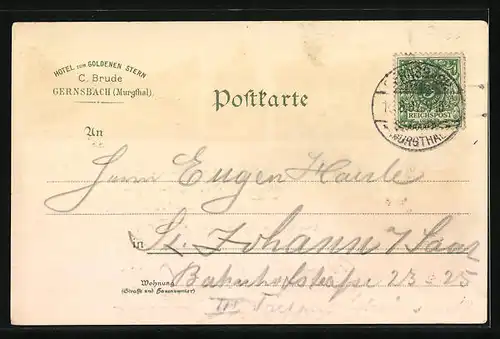 HOTEL ZUM GOLDENEN STERN
C. Brude
GERNSBACH (Murgthal).
Postkarte
REICHSPOST
MURGTHAL
An
Herrn Eugen
in St. Johann / Saar
Wohnung
(Straße und Hausnummer)
Bahnhofstraße 23-25
III